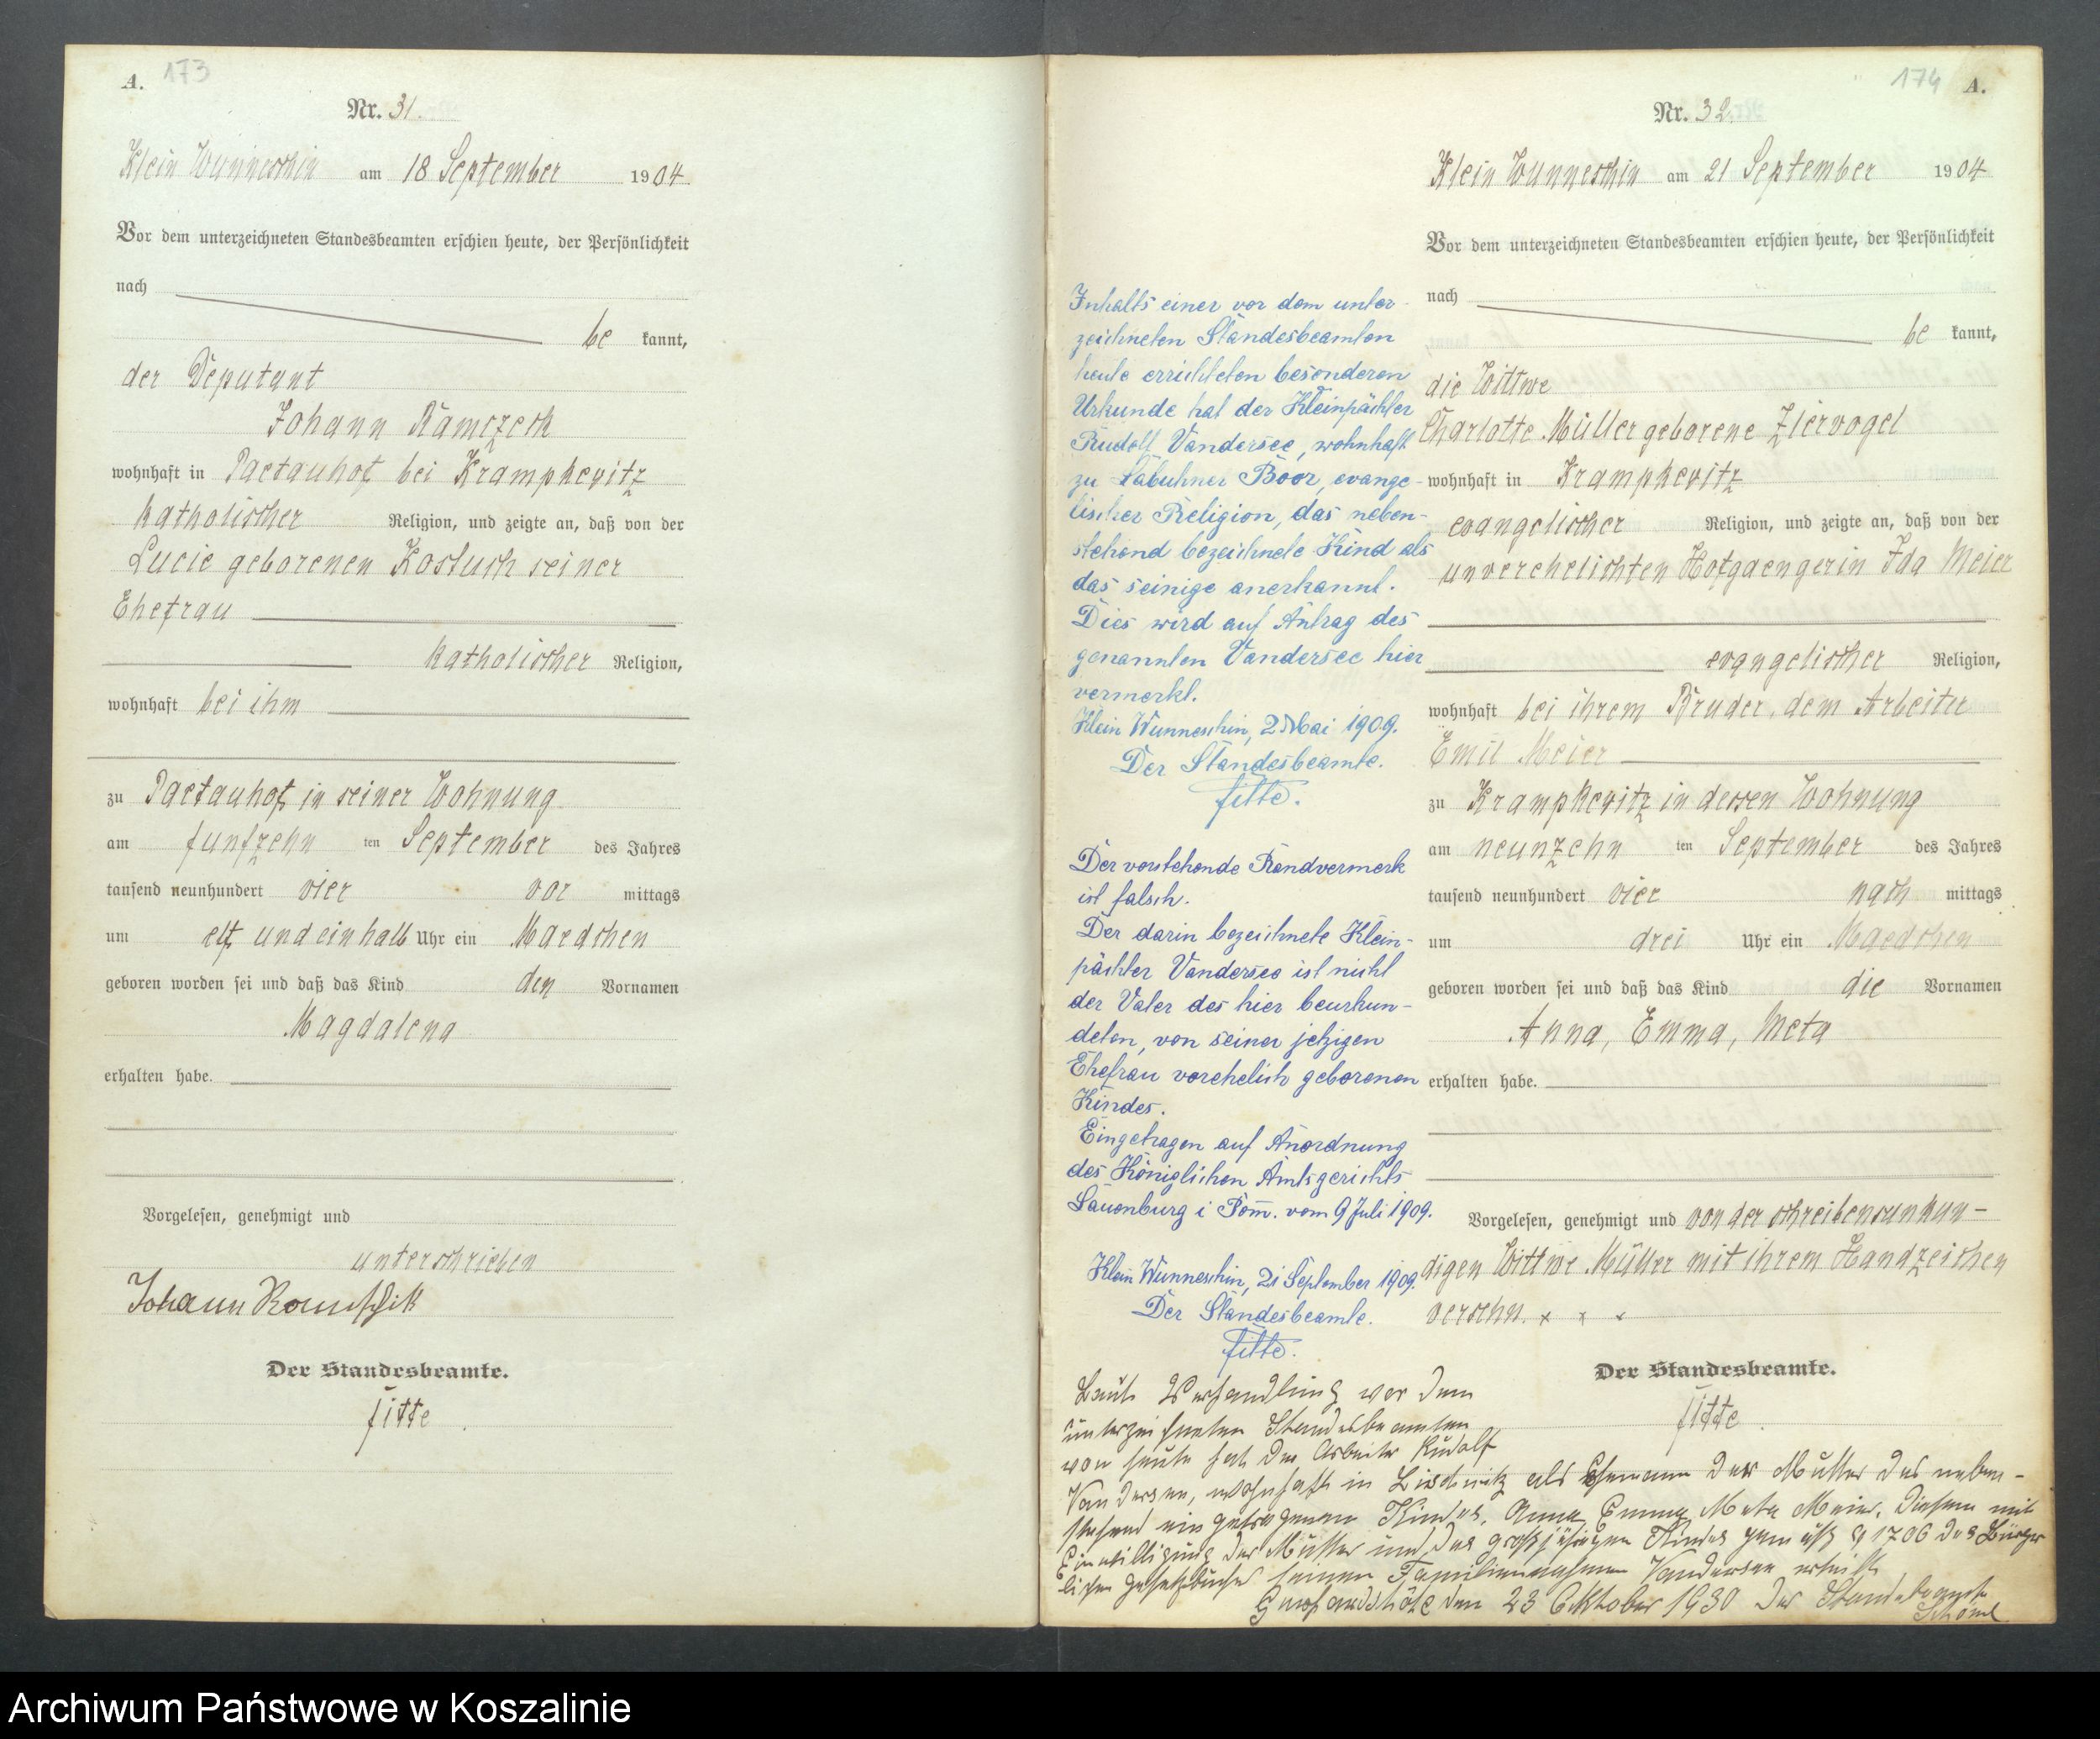 A. 173
Nr. 31.
Klein Wunneschin am 18 September 1904
Vor dem unterzeichneten Standesbeamten erschien heute, der Persönlichkeit
nach
be kannt,
der Deputant
Johann Ramczeck
wohnhaft in Paetauhof, bei Krampkewitz
katholischer Religion, und zeigte an, daß von der
Lucie geborenen Kostuch seiner
Ehefrau
katholischer Religion,
wohnhaft bei ihm
zu Paetauhof, in seiner Wohnung
am funfzehn ten September des Jahres
tausend neunhundert vier vor mittags
um elf und ein halb Uhr ein Maedchen
geboren worden sei und daß das Kind den Vornamen
Magdalena
erhalten habe.
Vorgelesen, genehmigt und
unterschrieben
Johann
Der Standesbeamte.
Fitte
174 A.
Nr. 32.
Klein Wunneschin am 21 September 1904
Vor dem unterzeichneten Standesbeamten erschien heute, der Persönlichkeit
nach
be kannt,
die Wittwe
Charlotte Müller geborene Ziervogel
wohnhaft in Krampkewitz
evangelischer Religion, und zeigte an, daß von der
unverehelichten Hofgaengerin Ida Meier
evangelischer Religion,
wohnhaft bei ihrem Bruder, dem Arbeiter
Emil Meier
zu Krampkewitz in dessen Wohnung
am neunzehn ten September des Jahres
tausend neunhundert vier nach mittags
um drei Uhr ein Maedchen
geboren worden sei und daß das Kind die Vornamen
Anna, Emma, Meta
erhalten habe.
Vorgelesen, genehmigt und von der schreibensunkun-
digen Wittwe Müller mit ihrem Handzeichen
versehn. x x x
Der Standesbeamte.
Fitte
Inhalts einer vor dem unter-
zeichneten Standesbeamten
heute errichteten besonderen
Urkunde hat der Kleinpächter
Rudolf Vandersee, wohnhaft
zu Labuhner Boor, evange-
lischer Religion, das neben-
stehend bezeichnete Kind als
das seinige anerkannt.
Dies wird auf Antrag des
genannten Vandersee hier
vermerkt.
Klein Wunneschin, 2 Mai 1909.
Der Standesbeamte.
Fitte.
Der vorstehende Randvermerk
ist falsch.
Der darin bezeichnete Klein-
pächter Vandersee ist nicht
der Vater des hier beurkun-
deten, von seiner jetzigen
Ehefrau vorehelich geborenen
Kindes.
Eingetragen auf Anordnung
des Königlichen Amtsgerichts
Lauenburg i Pom. vom 9 Juli 1909.
Klein Wunneschin, 21 September 1909.
Der Standesbeamte.
Fitte.
Laut Verhandlung vor dem
unterzeichneten Standesbeamten
von heute hat der Arbeiter Rudolf
Vandersee, wohnhaft in Lischnitz als Ehemann der Mutter des neben-
stehend eingetragenen Kindes, Anna Emma Meta Meier, diesem mit
Einwilligung der Mutter und des großjährigen Kindes gemäß § 1706 des Bürger
lichen Gesetzbuches seinen Familiennahmen Vandersee erteilt
den 23 Oktober 1930 Der Standesbeamte